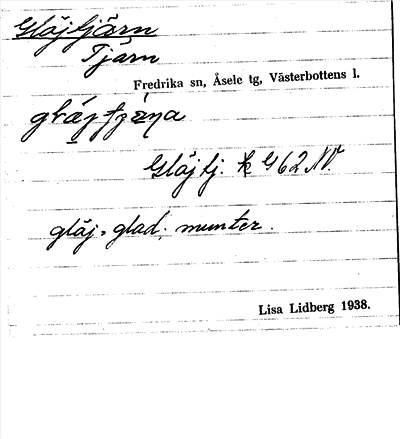 Gläjtjärn
Tjärn
Fredrika sn, Åsele tg, Västerbottens l.
Gläjtj. k G 62 NV.
gläj = glad, munter.
Lisa Lidberg 1938.